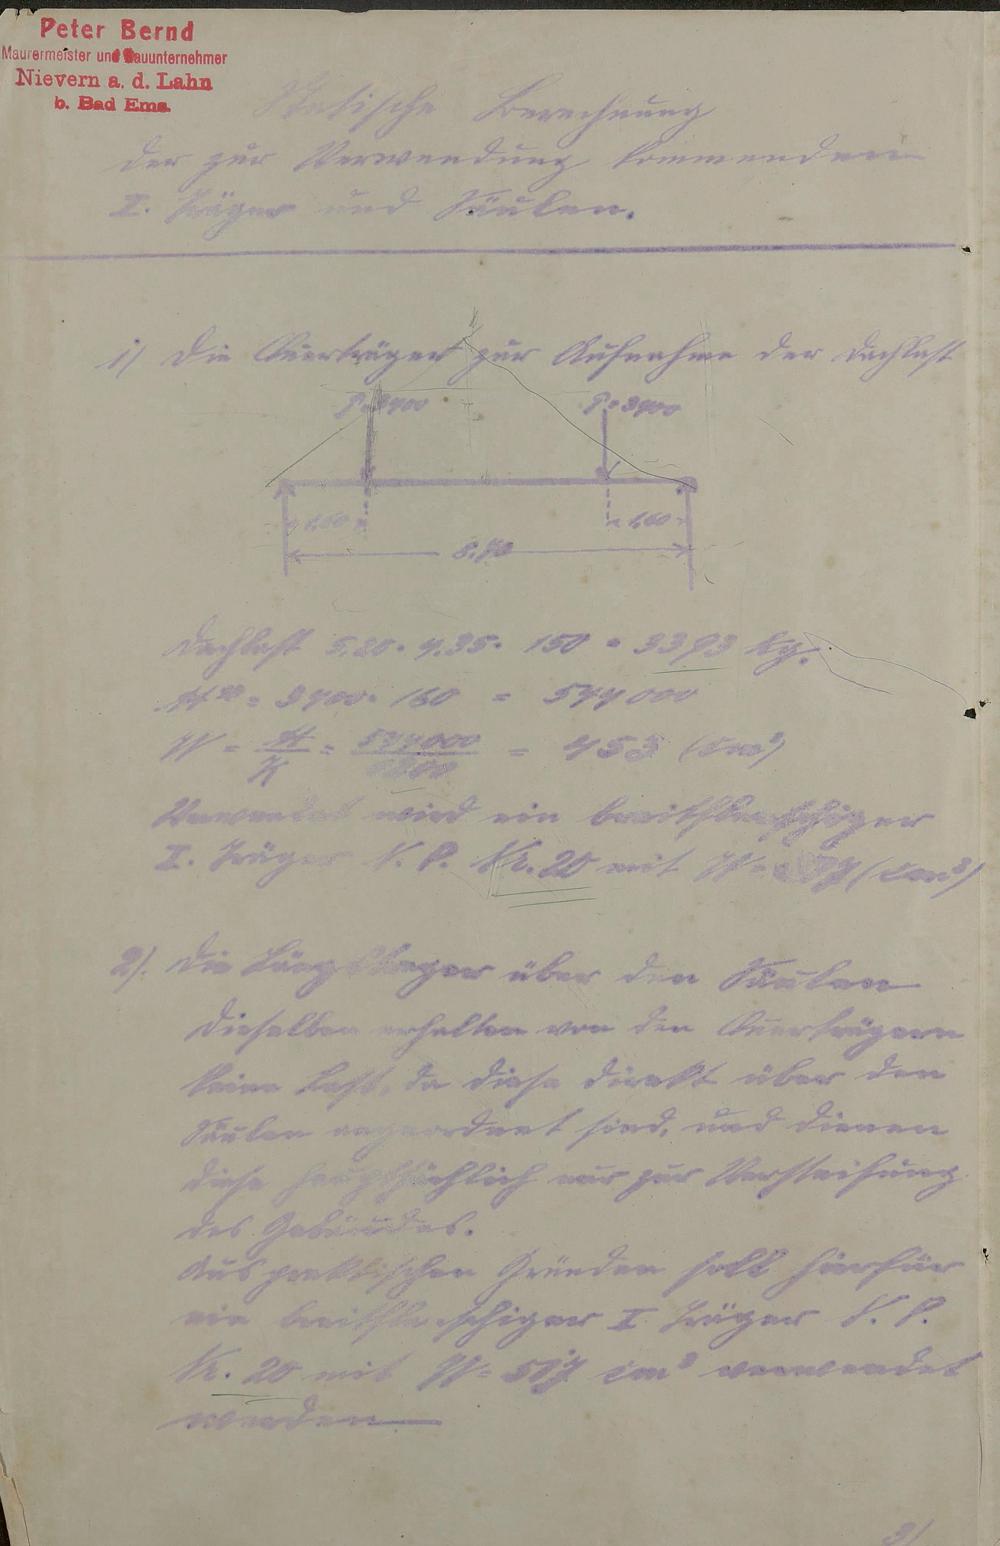 Peter Bernd
Maurermeister und Bauunternehmer
Nievern a. d. Lahn
b. Bad Ems.
Statische Berechnung
der zur Verwendung kommenden
I. Träger und Säulen.
1) Die Querträger zur Aufnahme der Dachlast
P=3400 P=3400
1,60 1,60
5.70
Dachlast 5.20 · 4.35 · 150 = 3393 kg.
M = 3400 · 160 = 544000
W = M/K = 544000/1200 = 453 (cm³)
Verwendet wird ein breitflanschiger
I. Träger N. P. Nr. 20 mit W = (cm³)
2). Die Längsträger über den Säulen
dieselben erhalten von den Querträgern
keine Last, da diese direkt über den
Säulen angeordnet sind, und dienen
diese hauptsächlich nur zur Versteifung
des Gebäudes.
Aus praktischen Gründen soll hierfür
ein breitflanschiger I Träger N. P.
Nr. 20 mit W = cm³ verwendet
werden
3)